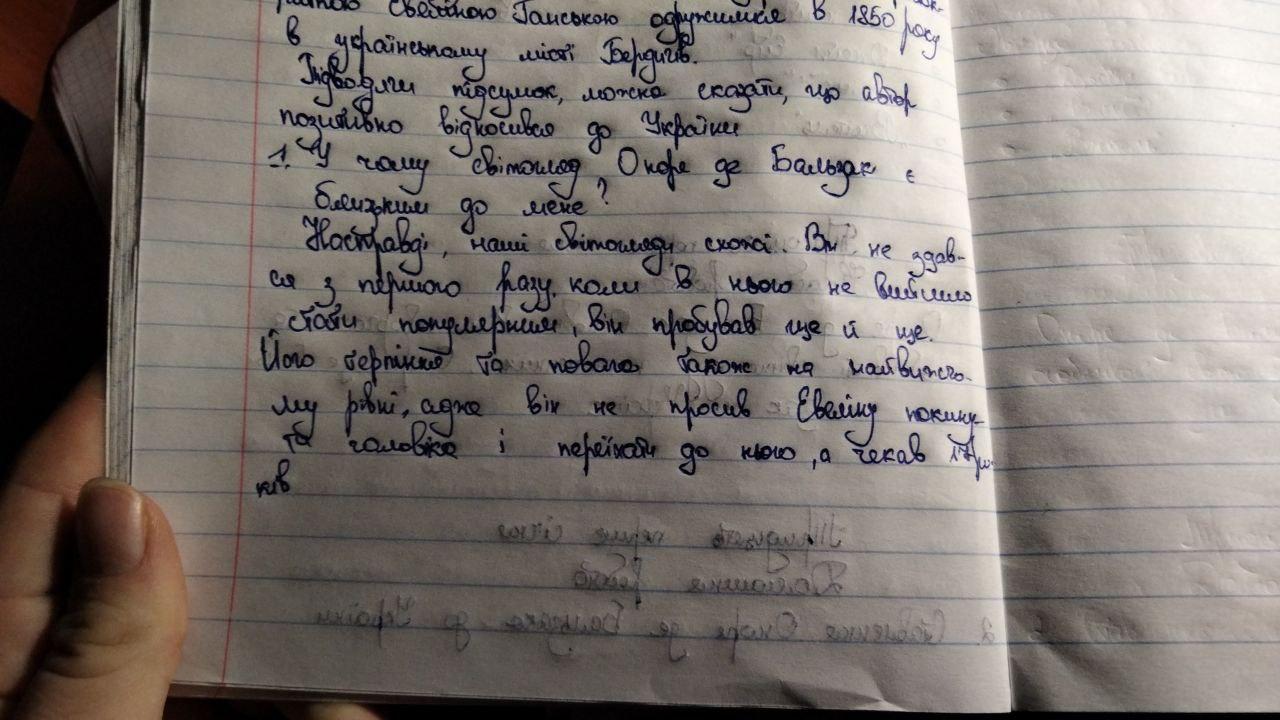 Ганською одружився в 1850 року
в українському місті Бердичів.
Підводячи підсумок, можна сказати, що автор
позитивно відносився до України
1. У чому світогляд Оноре де Бальзак є
близьким до мене?
Насправді, наші світогляди схожі. Він не здав-
ся з першого разу, коли в нього не вийшло
стати популярним, він пробував ще й ще.
Його терпіння та повага також на найвижчо-
му рівні, адже він не просив Евеліну покину-
ти чоловіка і переїхати до нього, а чекав 17 ро-
ків